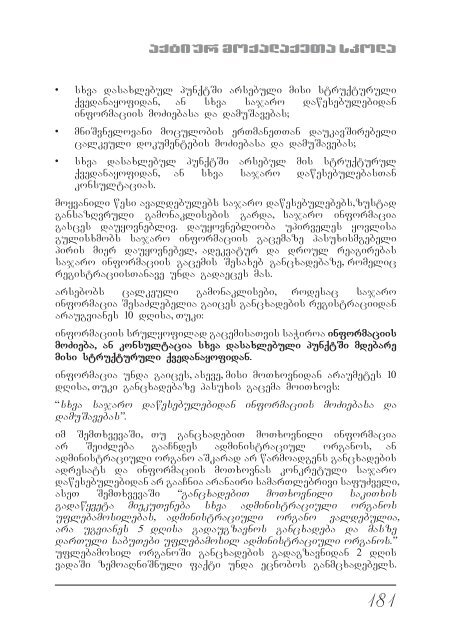 აქტიურ მოქალაქეთა სკოლა
• სხვა დასახლებულ პუნქტში არსებული მისი სტრუქტურული
ქვედანაყოფიდან, ან სხვა საჯარო დაწესებულებიდან
ინფორმაციის მოძიებასა და დამუშავებას;
• მნიშვნელოვანი მოცულობის ერთმანეთთან დაუკავშირებელი
ცალკეული დოკუმენტების მოძიებასა და დამუშავებას;
• სხვა დასახლებულ პუნქტში არსებულ მის სტრუქტურულ
ქვედანაყოფიდან, ან სხვა საჯარო დაწესებულებასთან
კონსულტაციას.
მოყვანილი წესი ავალდებულებს საჯარო დაწესებულებებს,ზუსტად
განსაზღვრული გამონაკლისების გარდა, საჯარო ინფორმაცია
გასცეს დაუყოვნებლივ. დაუყოვნებლიობა უპირველეს ყოვლისა
გულისხმობს საჯარო ინფორმაციის გაცემაზე პასუხისმგებელი
პირის მიერ დაუყოვნებელ, ადეკვატურ და დროულ რეაგირებას
საჯარო ინფორმაციის გაცემის შესახებ განცხადებაზე, რომელიც
რეგისტრაციისთანავე უნდა გადაეცეს მას.
არსებობს ცალკეული გამონაკლისები, როდესაც საჯარო
ინფორმაცია შესაძლებელია გაიცეს განცხადების რეგისტრაციიდან
არაუგვიანეს 10 დღისა, თუკი:
ინფორმაციის სრულყოფილად გაცემისათვის საჭიროა ინფორმაციის
მოძიება, ან კონსულტაცია სხვა დასახლებული პუნქტში მდებარე
მისი სტრუქტურული ქვედანაყოფიდან.
ინფორმაცია უნდა გაიცეს, ასევე, მისი მოთხოვნიდან არაუმეტეს 10
დღისა, თუკი განცხადებაზე პასუხის გაცემა მოითხოვს:
“სხვა საჯარო დაწესებულებიდან ინფორმაციის მოძიებასა და
დამუშავებას”.
იმ შემთხვევაში, თუ განცხადებით მოთხოვნილი ინფორმაცია
არ შეიძლება გააჩნდეს ადმინისტრაციულ ორგანოს, ან
ადმინისტრაციული ორგანო აშკარად არ წარმოადგენს განცხადების
ადრესატს და ინფორმაციის მოთხოვნას კონკრეტული საჯარო
დაწესებულებიდან არ გააჩნია არანაირი სამართლებრივი საფუძველი,
ასეთ შემთხვევაში “განცხადებით მოთხოვნილი საკითხის
გადაწყვეტა მიეკუთვნება სხვა ადმინისტრაციული ორგანოს
უფლებამოსილებას, ადმინისტრაციული ორგანო ვალდებულია,
არა უგვიანეს 5 დღისა გადაუგზავნოს განცხადება და მასზე
დართული საბუთები უფლებამოსილ ადმინისტრაციულ ორგანოს.”
უფლებამოსილ ორგანოში განცხადების გადაგზავნიდან 2 დღის
ვადაში ზემოაღნიშნული ფაქტი უნდა ეცნობოს განმცხადებელს.
181